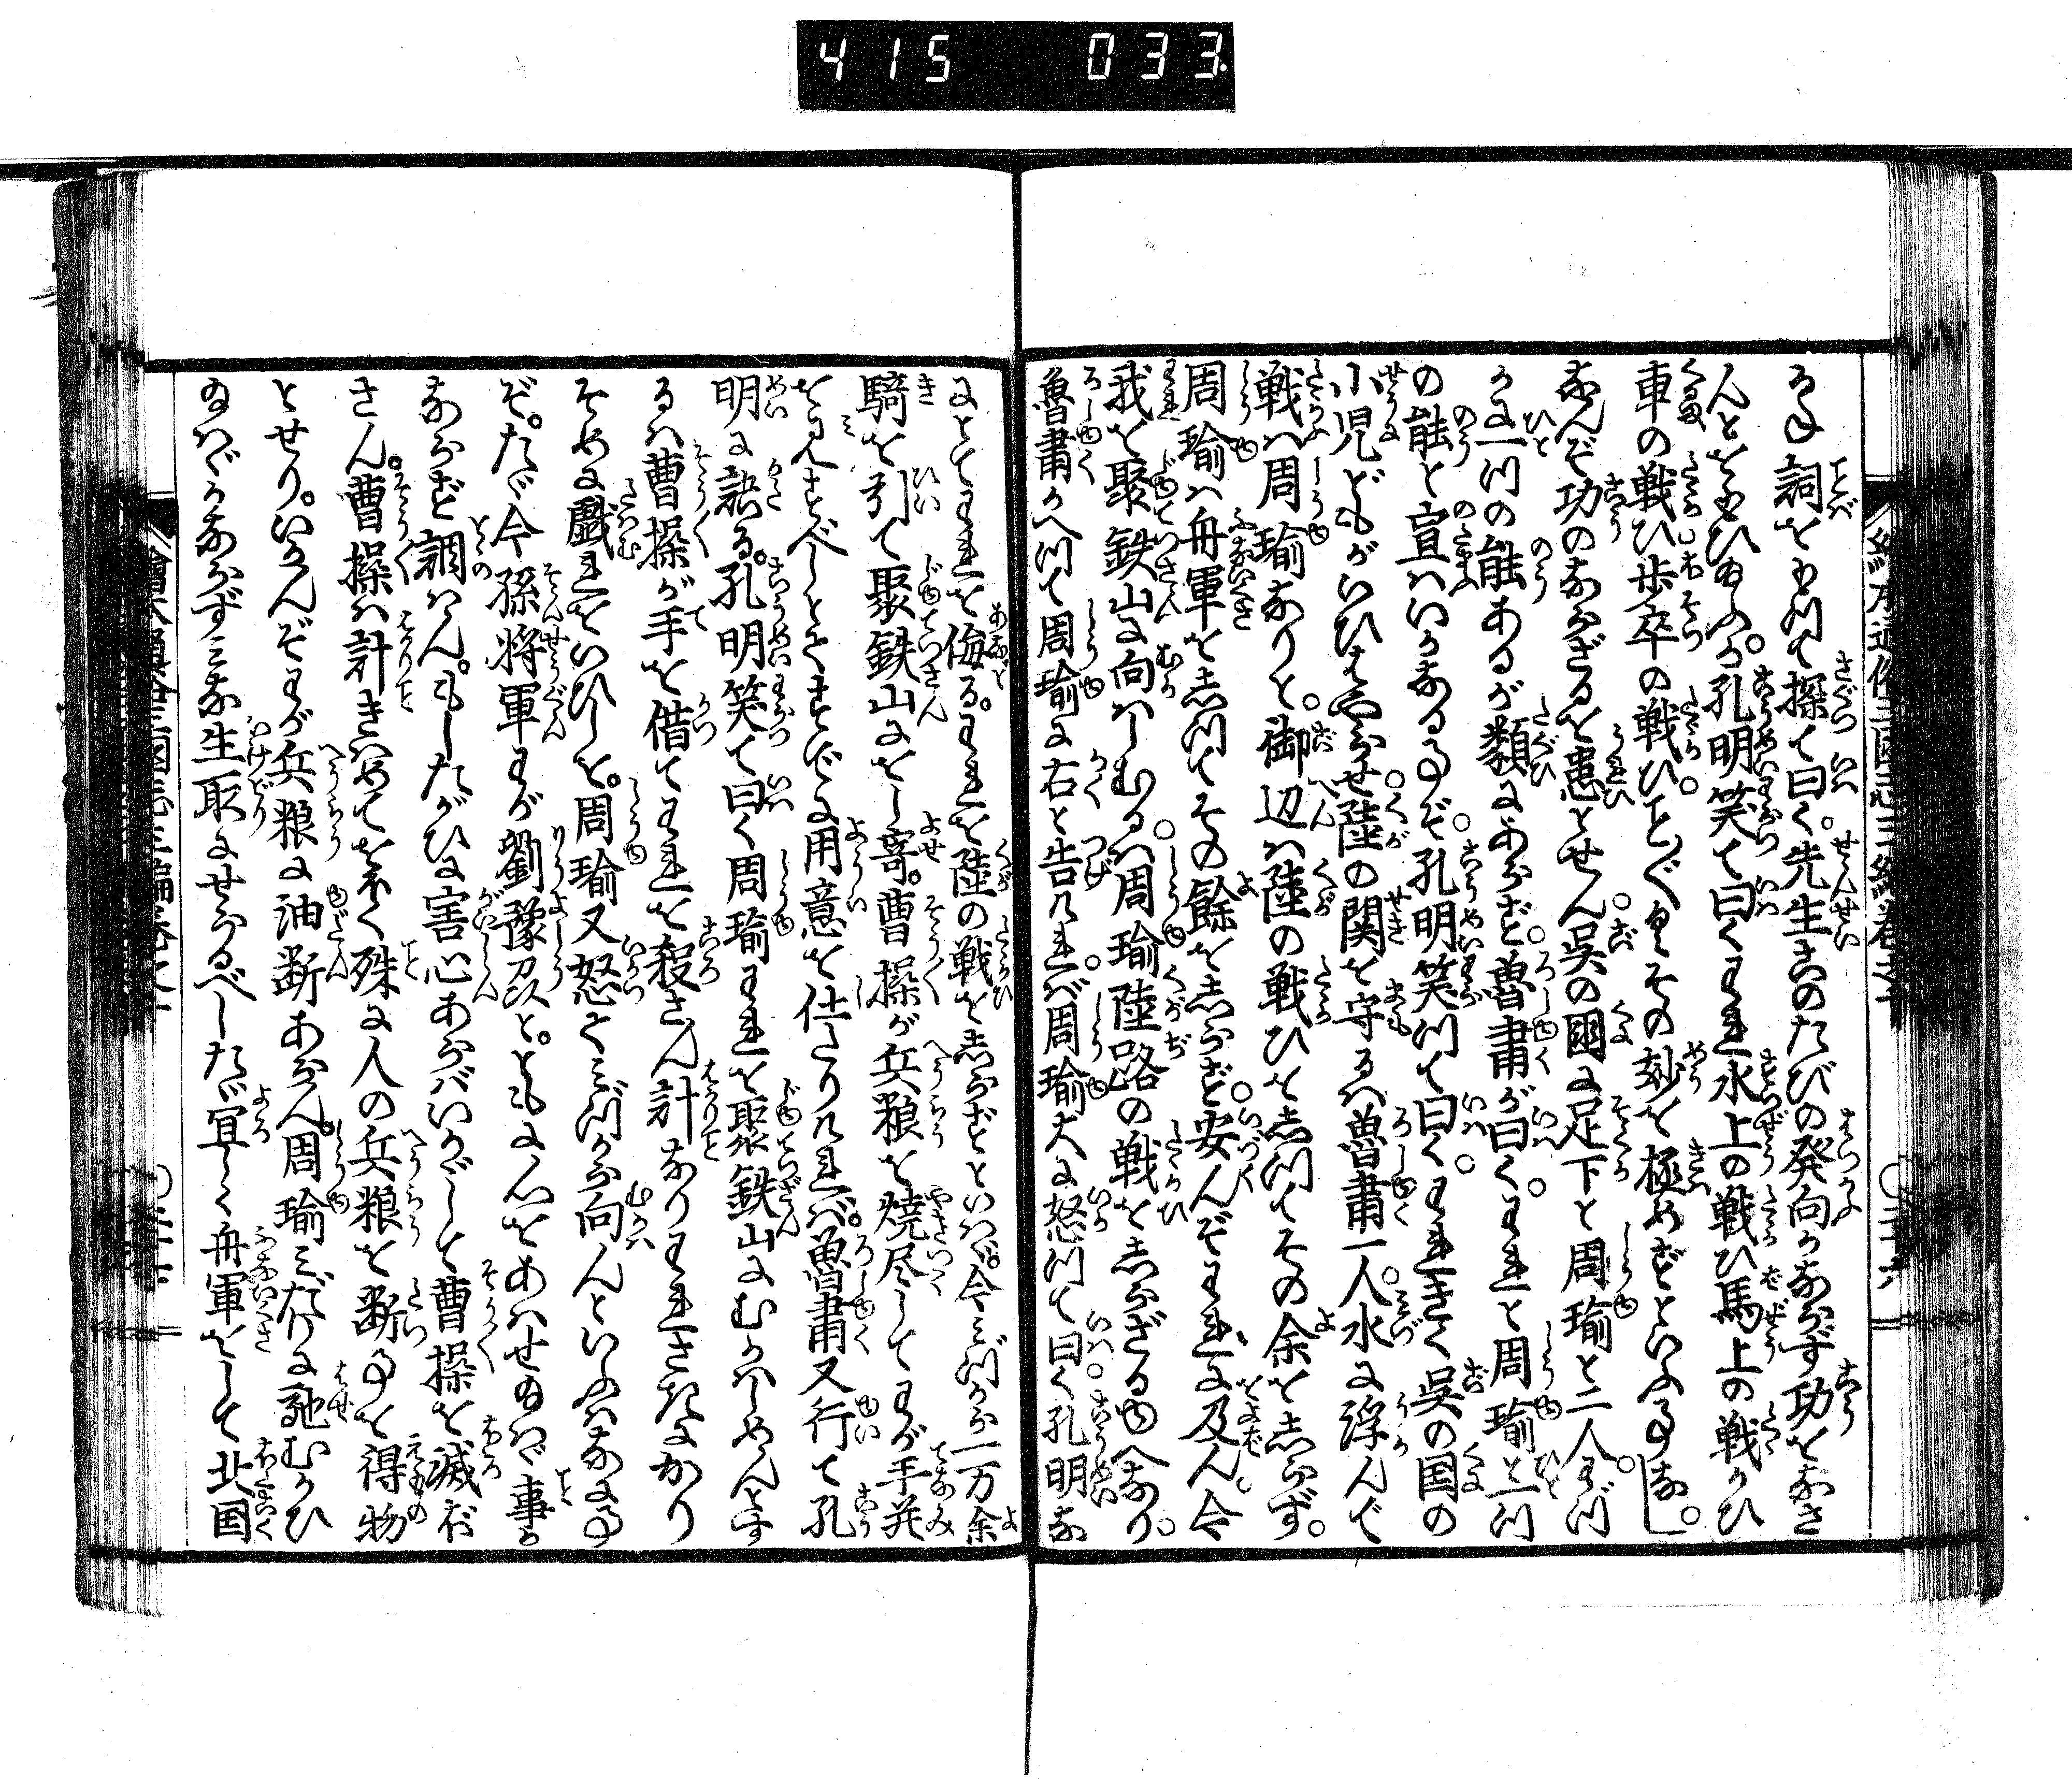 415 033
繪本通俗三國志三編卷之
るゆ詞をもつて探て曰く先生このたびの発向かならず功をなさ
んとをもひ給ふか孔明笑て曰くわれ水上の戦ひ馬上の戦ひ
車の戦ひ歩卒の戦ひことごとくその妙を極めずといふ事なし
なんぞ功のならざるを患とせん呉の國に足下と周瑜と二人わづ
かに一つの能あるが類にあらず魯粛が曰くわれと周瑜と一つ
の能と宣はいかなる事ぞ孔明笑つて曰くわれきく呉の国の
小児どもがいひはやらせ陸の関を守るハ魯粛一人水に浮んで
戦ハ周瑜なりと御辺ハ陸の戦ひを志つてその余を志らず
周瑜ハ舟軍を志つてその餘を志らず安んぞわれに及ん今
我を聚鉄山に向ハしむるハ周瑜陸路の戦を志らざるゆへなり
魯粛かへつて周瑜に右と告けれバ周瑜大に怒つて曰く孔明な
にとてわれを侮るわれを陸の戦を志らずといはゞ今みづから一万余
騎を引て聚鉄山にをし寄曹操が兵粮を焼尽してわが手並
を見すべしとてすでに用意を仕たりけれバ魯粛又行て孔
明に訣る孔明笑て曰く周瑜われを聚鉄山にむかハしめんとす
るハ曹操が手を借てわれを殺さん計なりわれさきにかり
そめに戯れをいひしを周瑜又怒てみづから向んといふハなに事
ぞたゞ今孫将軍わが劉豫州とともに心をあハせ給ハゞ事
ならずと調ハんもしたがひに害心あらバいかゞして曹操を滅ぼ
さん曹操ハ計きハめてをほく殊に人の兵粮を断事を得物
とせりいかんぞわが兵粮に油断あらん周瑜みだりに馳むかひ
給ハゞかならずみな生取にせらるべしたゞ宜しく舟軍をして北国